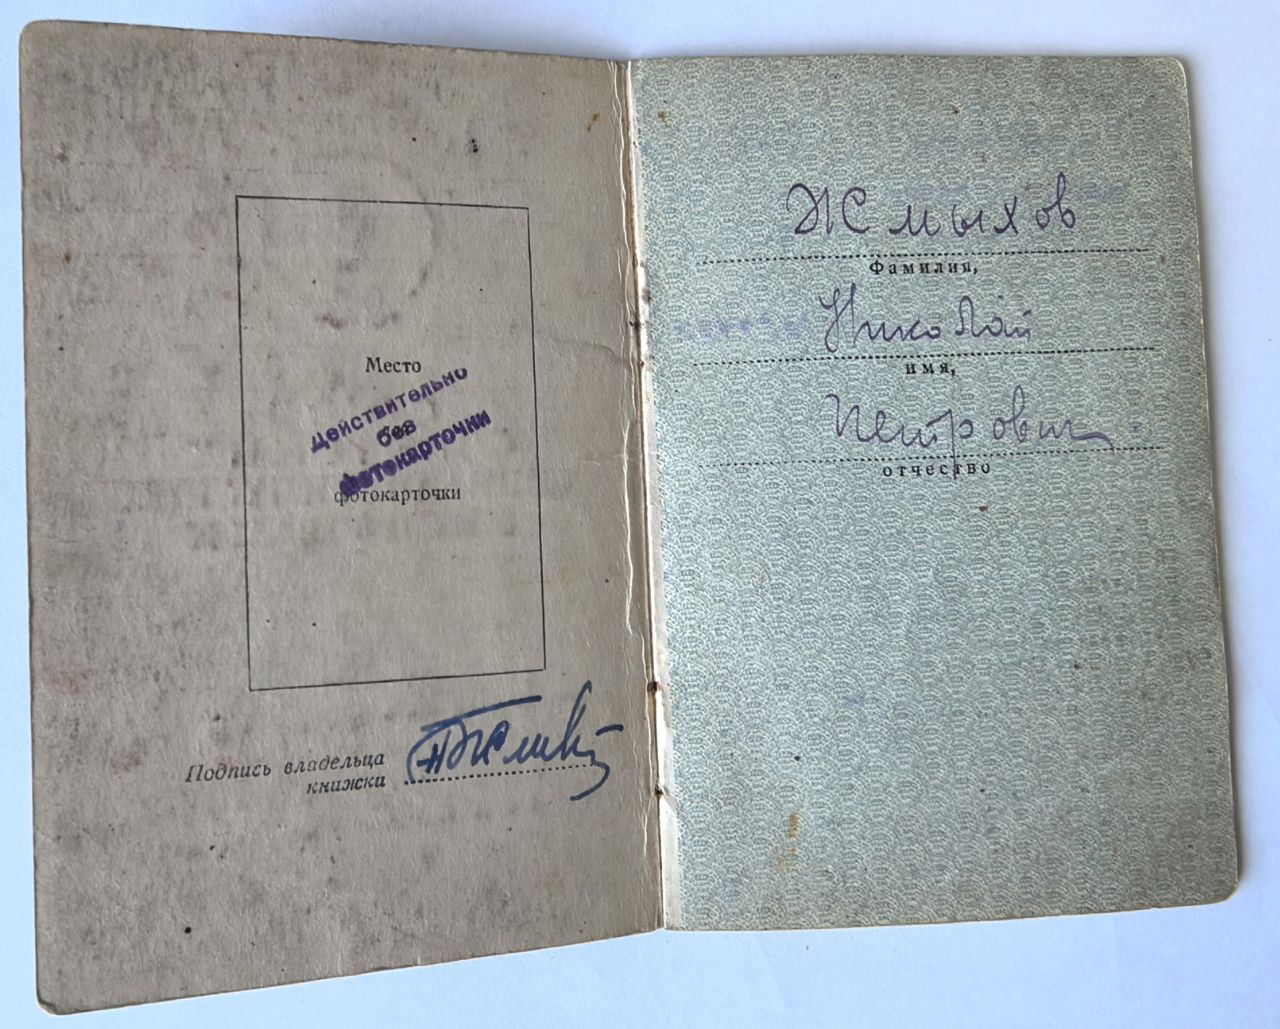 Место
Действительно
без
фотокарточки
фотокарточки
Подпись владельца
книжки
Жмыхов
Фамилия,
Николай
имя,
Петрович
отчество